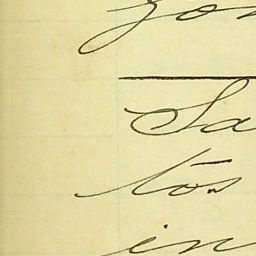 zon
Sa
tōs
in